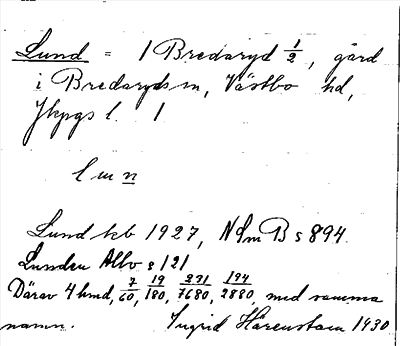 Lund = 1 Bredaryd 1/2, gård
i Bredaryds sn, Västbo hd,
Jkpgs l. 1
l u n
Lund kb 1927, NSmB s 894.
Lunden Allbo s 121
Därav 4 hmd, 7/60, 19/180, 271/7680, 194/2880, med samma
namn. Ingrid Hårenstam 1930